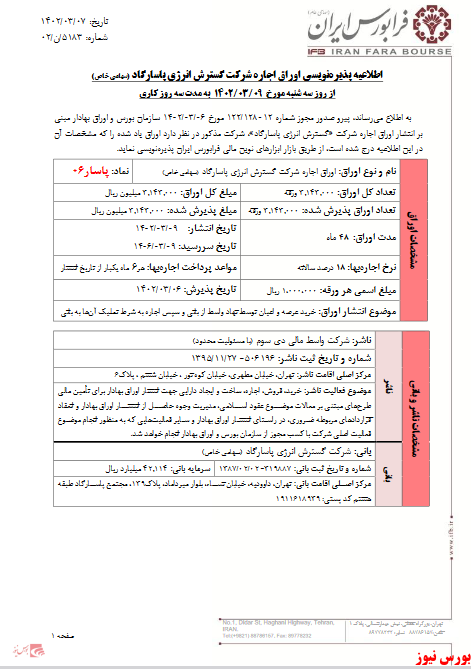 تاریخ: ۱۴۰۲/۰۳/۰۷
شماره: ۵۱۸۳/ن/۰۲
فرابورس ایران
IFB IRAN FARA BOURSE
اطلاعیه پذیره‌نویسی اوراق اجاره شرکت گسترش انرژی پاسارگاد (سهامی خاص)
از روز سه شنبه مورخ ۱۴۰۲/۰۳/۰۹ به مدت سه روز کاری
به اطلاع می‌رساند، پیرو صدور مجوز شماره ۱۲-۱۲۲/۱۲۸ مورخ ۱۴۰۲/۰۳/۰۶ سازمان بورس و اوراق بهادار مبنی
بر انتشار اوراق اجاره شرکت «گسترش انرژی پاسارگاد»، شرکت مذکور در نظر دارد اوراق یاد شده را که مشخصات آن
در این اطلاعیه درج شده است، از طریق بازار ابزارهای نوین مالی فرابورس ایران پذیره‌نویسی نماید.
مشخصات اوراق
نام و نوع اوراق: اوراق اجاره شرکت گسترش انرژی پاسارگاد (سهامی خاص) نماد: پاسار۰۶
تعداد کل اوراق: ۳,۱۴۳,۰۰۰ ورقه مبلغ کل اوراق: ۳,۱۴۳,۰۰۰ میلیون ریال
تعداد اوراق پذیرش شده: ۳,۱۴۳,۰۰۰ ورقه مبلغ پذیرش شده: ۳,۱۴۳,۰۰۰ میلیون ریال
مدت اوراق: ۴۸ ماه تاریخ انتشار: ۱۴۰۲/۰۳/۰۹
تاریخ سررسید: ۱۴۰۶/۰۳/۰۹
نرخ اجاره‌بها: ۱۸ درصد سالانه مواعد پرداخت اجاره‌بها: هر ۶ ماه یکبار از تاریخ انتشار
مبلغ اسمی هر ورقه: ۱,۰۰۰,۰۰۰ ریال تاریخ پذیرش: ۱۴۰۲/۰۳/۰۶
موضوع انتشار اوراق: خرید عرصه و اعیان توسط نهاد واسط از بانی و سپس اجاره به شرط تملیک آن‌ها به بانی
مشخصات ناشر و بانی
ناشر
ناشر: شرکت واسط مالی دی سوم (با مسئولیت محدود)
شماره و تاریخ ثبت ناشر: ۵۰۶۱۹۶ - ۱۳۹۵/۱۱/۲۷
مرکز اصلی اقامت ناشر: تهران، خیابان مطهری، خیابان کوه نور، خیابان ششم، پلاک۶
موضوع فعالیت ناشر: خرید، فروش، اجاره، ساخت و ایجاد دارایی جهت انتشار اوراق بهادار برای تأمین مالی
طرح‌های مبتنی بر معاملات موضوع عقود اسلامی، مدیریت وجوه حاصل از انتشار اوراق بهادار و انعقاد
قراردادهای مربوطه ضروری، در راستای انتشار اوراق بهادار و سایر فعالیت‌هایی که به منظور انجام موضوع
فعالیت اصلی شرکت با کسب مجوز از سازمان بورس و اوراق بهادار انجام خواهد شد.
بانی
بانی: شرکت گسترش انرژی پاسارگاد (سهامی خاص)
شماره و تاریخ ثبت بانی: ۳۱۹۸۸۷-۱۳۸۷/۰۲/۰۲ سرمایه بانی: ۴۲,۱۱۴ میلیارد ریال
مرکز اصلی اقامت بانی: تهران، داوودیه، خیابان بلوار میرداماد، پلاک۱۳۹، مجتمع پاسارگاد طبقه
هشتم کد پستی: ۱۹۱۱۶۱۸۹۳۹
www.ifb.ir
No.1, Didar St, Haghani Highway, Tehran,
IRAN.
صفحه ۱
بورس نیوز